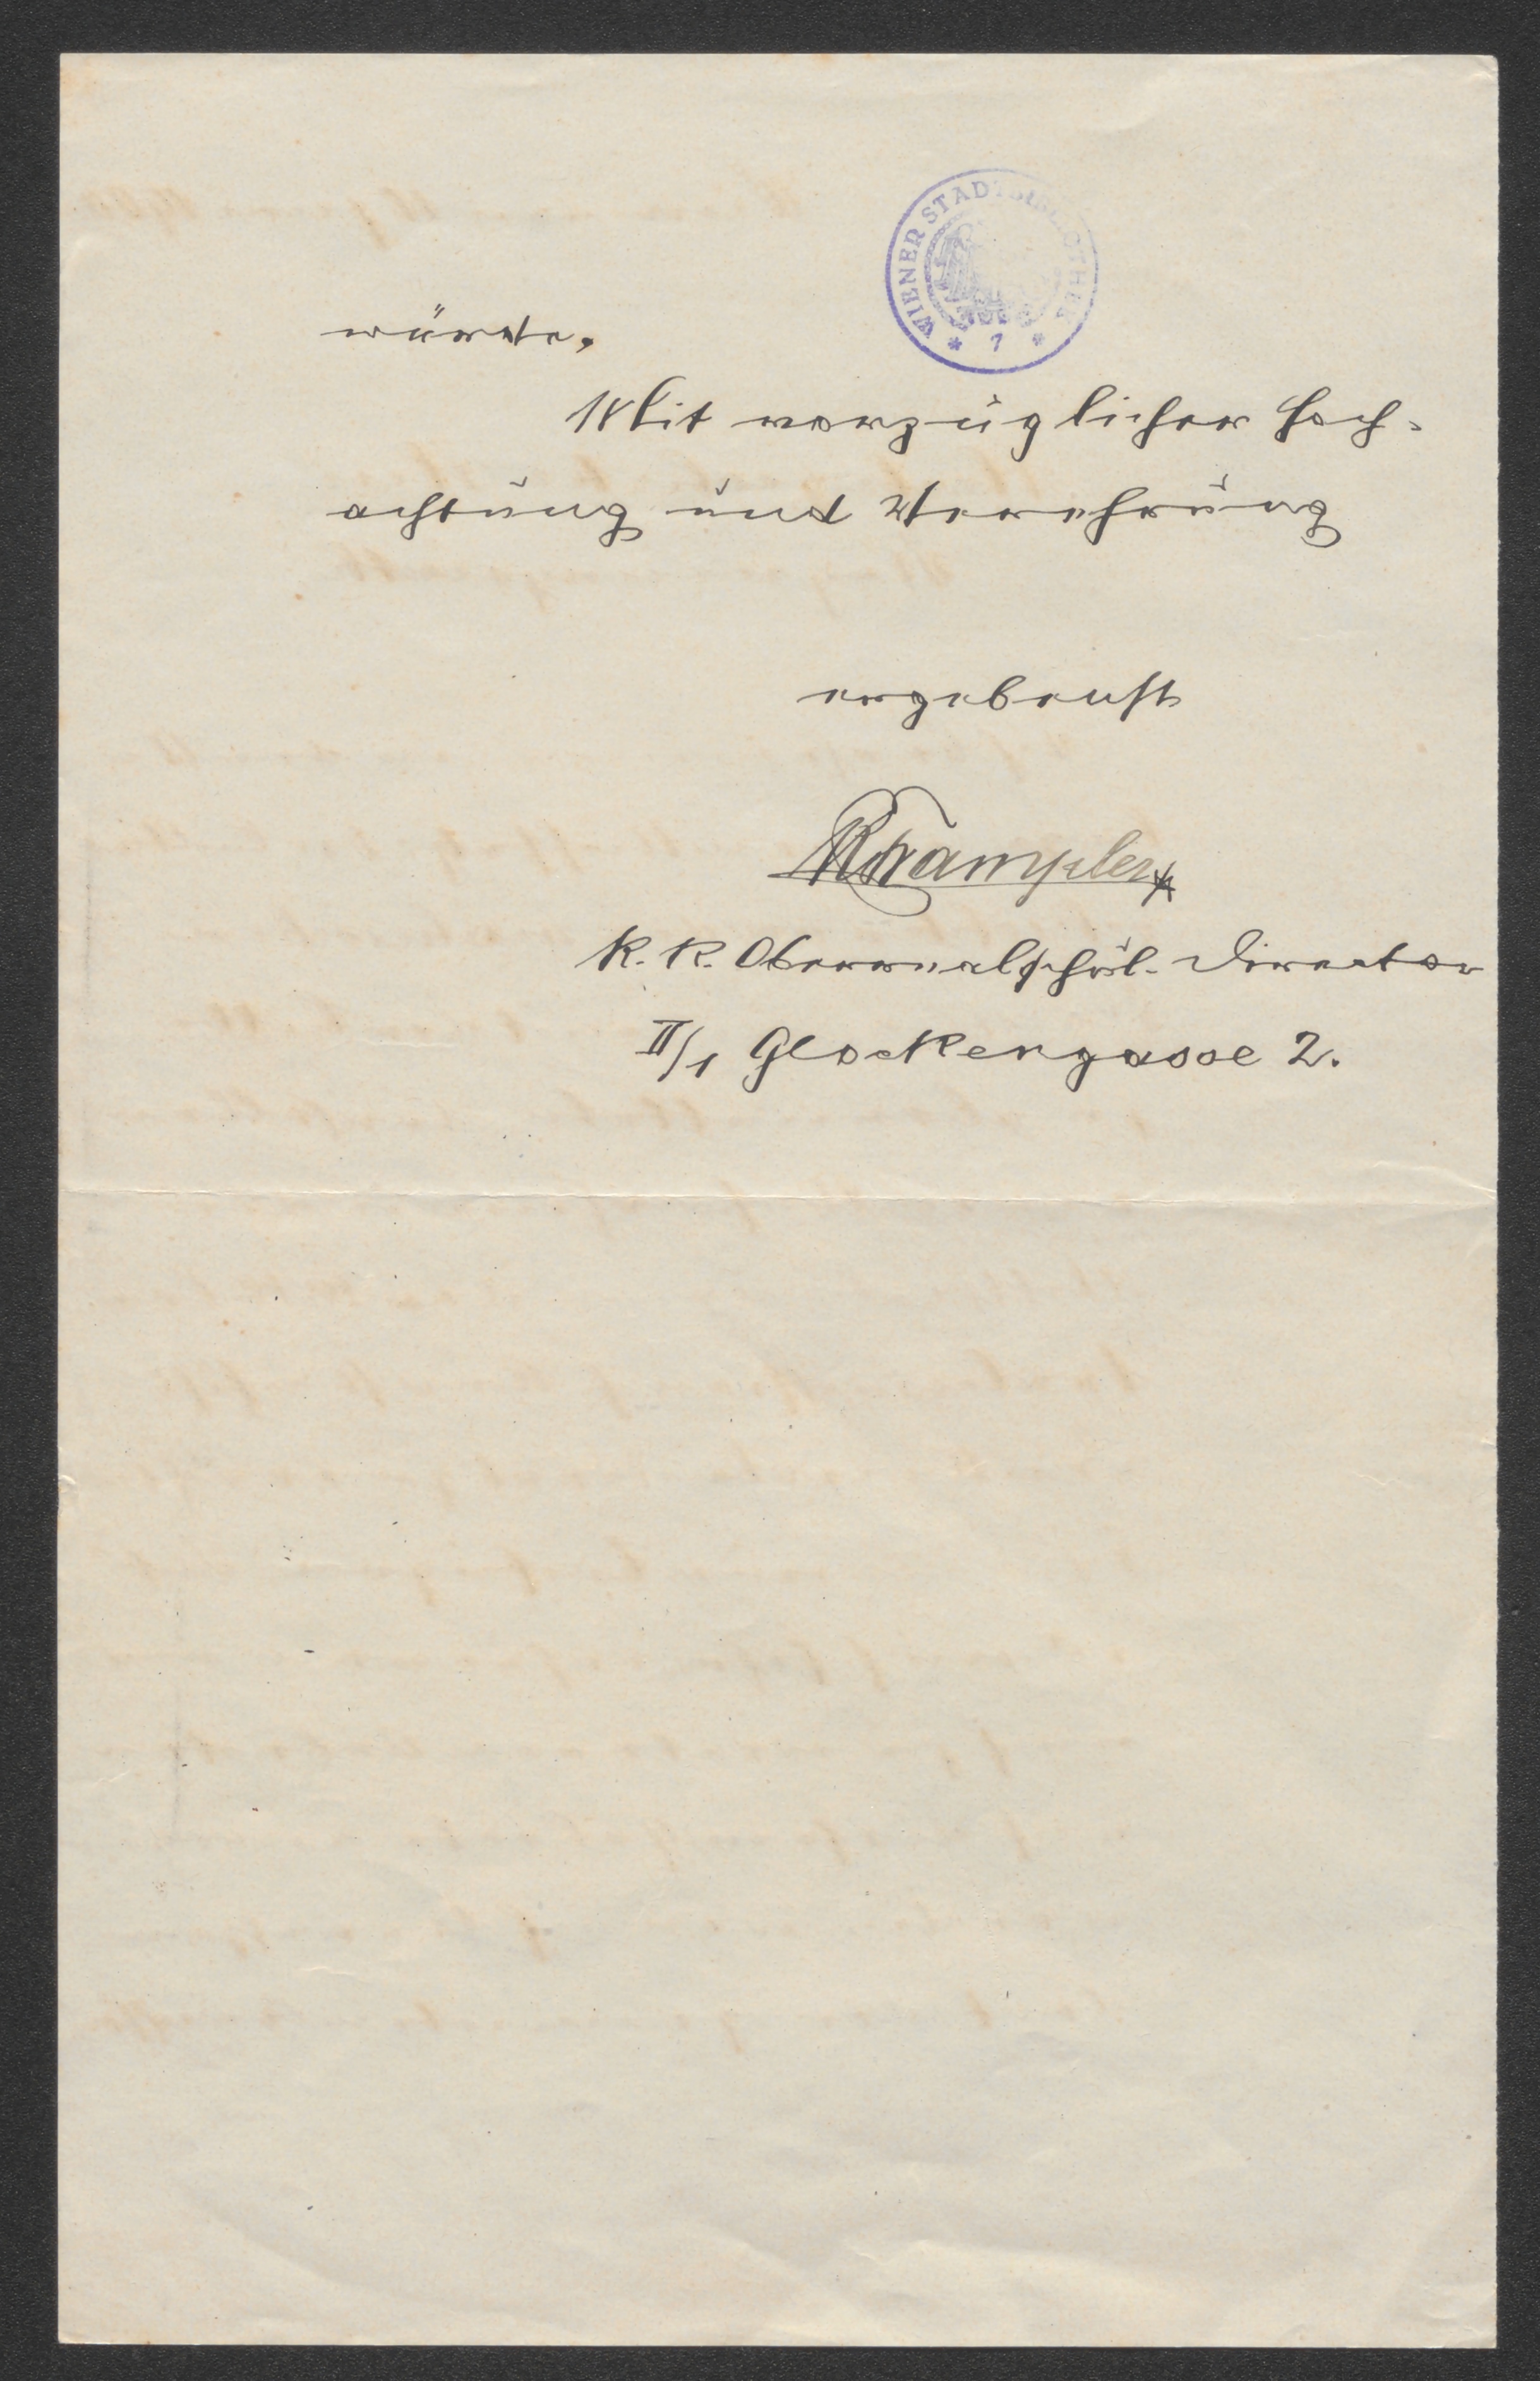 WIENER STADTBIBLIOTHEK
* 7 *
würde.
Mit vorzüglicher Hoch-
achtung und Verehrung
ergebenst
RTrampler
K. K. Oberrealschul-Director
II/1 Glockengasse 2.